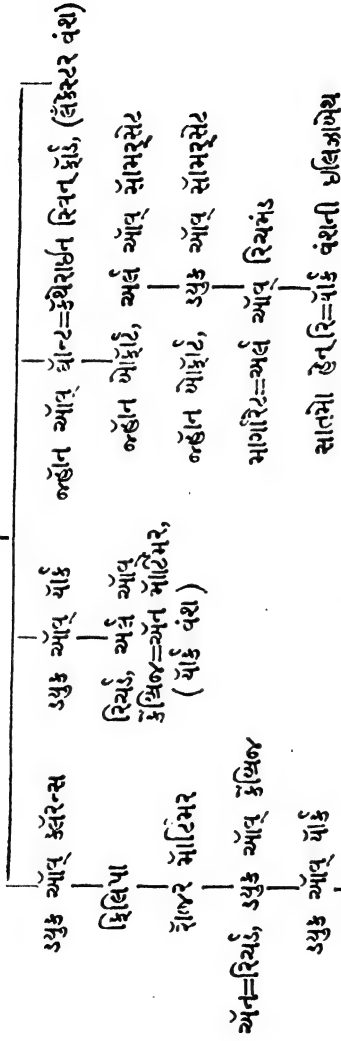 ડ્યુક ઑવ્ ક્લૅરન્સ
ફિલિપા
રૉજર મૉર્ટિમર
ઍન=રિચર્ડ, ડ્યુક ઑવ્ કૅમ્બ્રિજ
ડ્યુક ઑવ્ યૉર્ક
ડ્યુક ઑવ્ યૉર્ક
રિચર્ડ, અર્લ ઑવ્
કૅમ્બ્રિજ=ઍન મૉર્ટિમર,
(યૉર્ક વંશ)
જ્હૉન ઑવ્ ઘૉન્ટ=કૅથેરાઇન સ્વિનફૉર્ડ, (લૅંકેસ્ટર વંશ)
જ્હૉન બોફૉર્ટ, અર્લ ઑવ્ સૉમરસેટ
જ્હૉન બોફૉર્ટ, ડ્યુક ઑવ્ સૉમરસેટ
માર્ગારેટ=અર્લ ઑવ્ રિચમંડ
સાતમો હેન્રિ=યૉર્ક વંશની ઇલિઝાબેથ